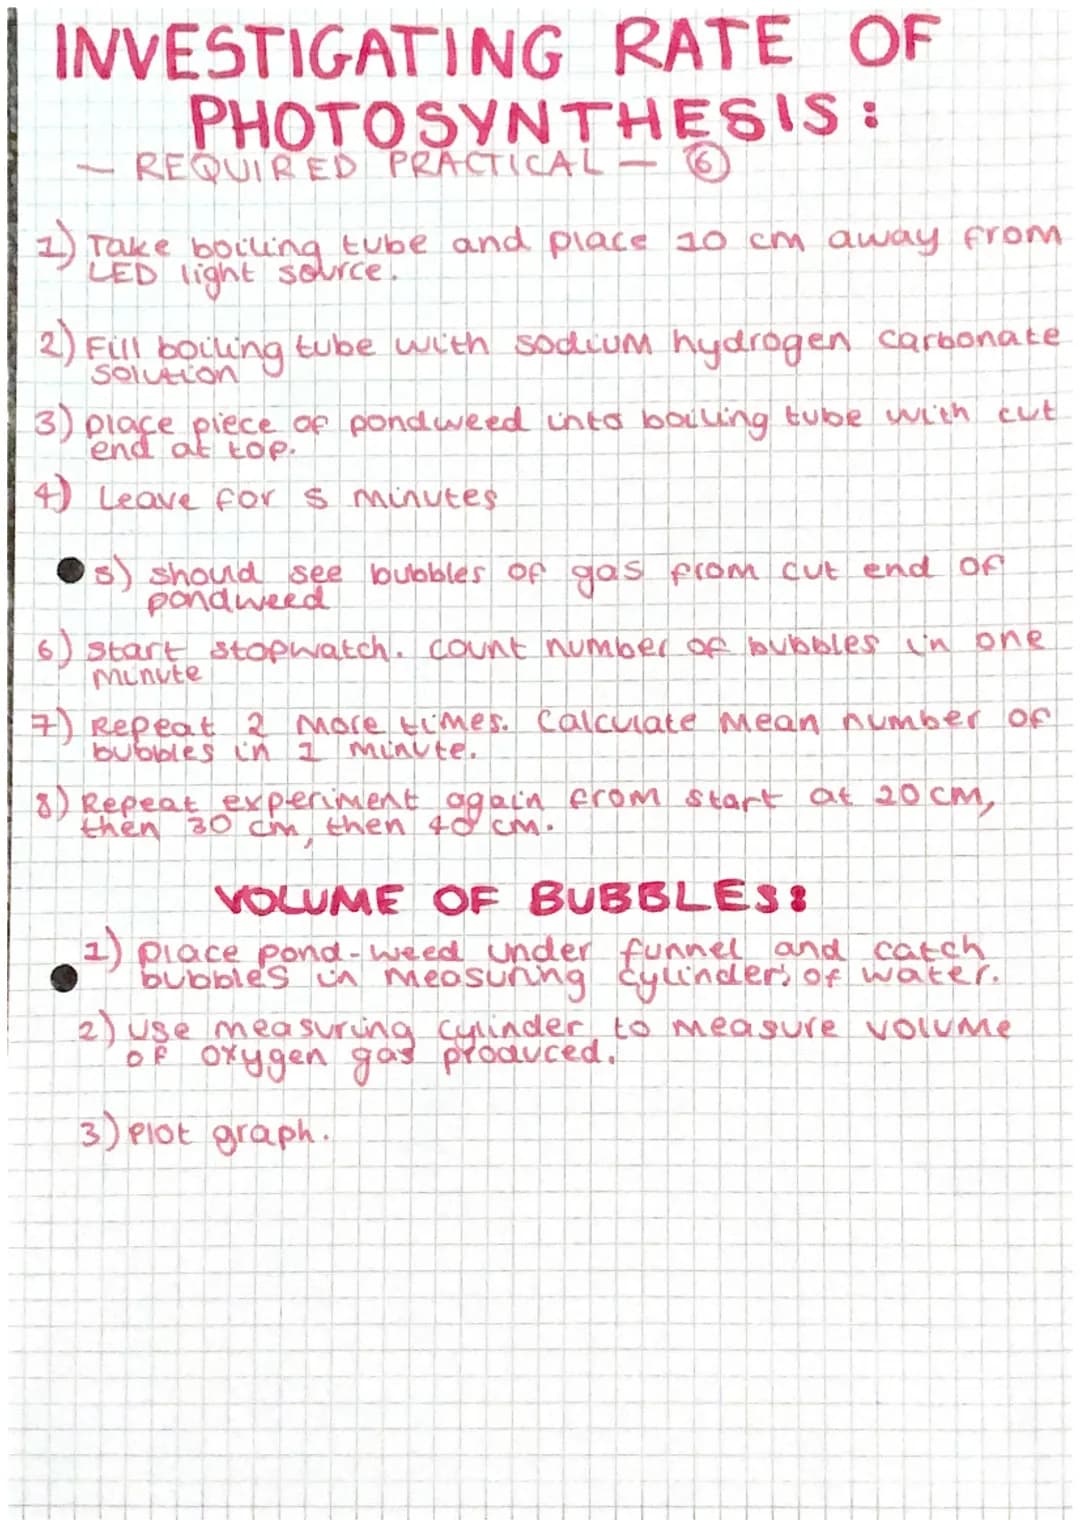 INVESTIGATING RATE OF
PHOTOSYNTHESIS:
- REQUIRED PRACTICAL - 6
1) Take boiling tube and place 10 cm away from
LED light source.
2) Fill boiling tube with sodium hydrogen carbonate
solution
3) place piece of pondweed into boiling tube with cut
end at top.
4) Leave for 5 minutes
5) shoud see bubbles of gas from cut end of
pondweed
6) start stopwatch. count number of bubbles in one
minute
7) Repeat 2 more times. Calculate mean number of
bubbles in 1 minute.
8) Repeat experiment again from start at 20 cm,
then 30 cm, then 40 cm.
VOLUME OF BUBBLES:
1) place pond-weed under funnel and catch
bubbles in measuring cylinder, of water.
2) use measuring cylinder to measure volume
of oxygen gas produced.
3) Plot graph.